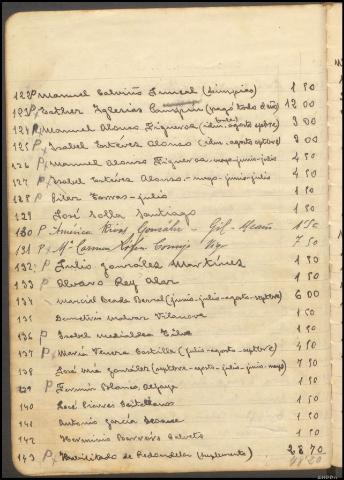 122 P Manuel Calviño Juncal (Olimpias) 1 50
123 P, Esther Iglesias Campin (pagó todo el año) 12 00
124 P, Manuel Alonso Figueroa (idem. agosto sepbre) 3 00
125 P, Isabel Estévez Alonso (idem. agosto sepbre) 3 00
126 P, Manuel Alonso Figueroa - mayo - junio - julio 4 50
127 P, Isabel Estévez Alonso. - mayo - junio - julio 4 50
128 P Pilar Torras - julio 1 50
129 José Solla Santiago 1 50
130 P América Rivas González - Gil - Meaño 1 50
131 P, Mª Carmen López Cornejo Vigo 7 50
132 P Julio González Martínez 1 50
133 P Alvaro Rey Alar 1 50
134 Marcial Prado Berral (junio - julio - agosto - septbre) 6 00
135 Demetrio Malvar Vilanova 1 50
136 P Isabel Medialdea Silva 1 50
137 P, María Vences Portilla (julio - agosto - septbre) 4 50
138 José Mª González (septbre - agosto - julio - junio - mayo) 7 50
139 P Fermín Blanco 1 50
140 José Piñeiro 1 50
141 Antonio García 1 50
142 Herminio Barreiro 1 50
143 P, Habilitado de Redondela (suplemento) 28 70